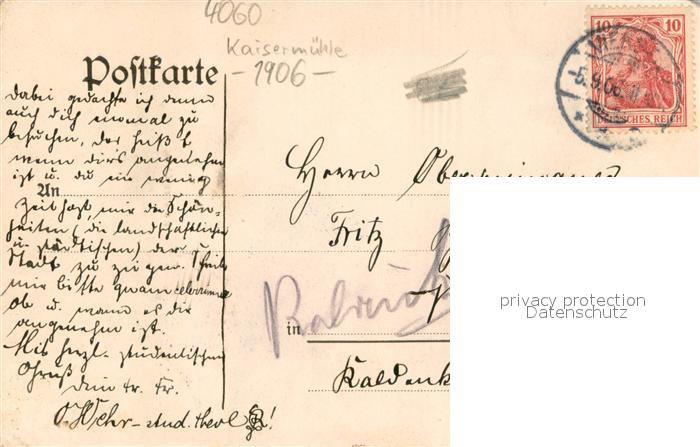 4060
Kaisermühle
- 1906 -
Postkarte
10 10
5.9.06.
DEUTSCHES REICH
Dabei gedachte ich denn
auch dich einmal zu
besuchen, das heißt
wenn dir's angenehm
ist u. du ein wenig
An
Zeit hast, mir die Schön-
heiten (die landschaftlichen
u. städtischen) der
Stadt zu zeigen. Schreib
mir bitte
ob u. wann es dir
angenehm ist.
Mit herzl. studentischem
Gruß
dein tr. Fr.
stud. theol !
Herrn
Fritz
in
Kaldenk
privacy protection
Datenschutz